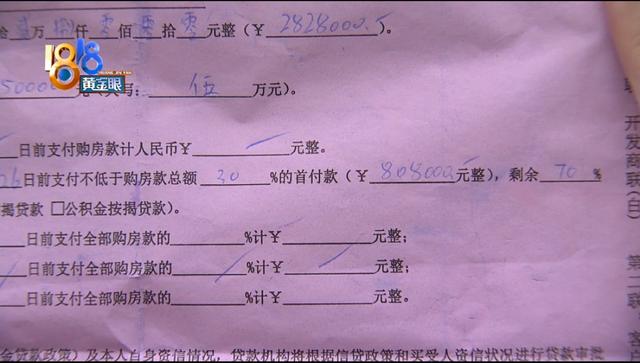 拾 万 仟零佰零拾零元整（￥2828000.5）。
1818
黄金眼
50000元（大写：伍万元）。
日前支付购房款计人民币￥ 元整。
26日前支付不低于购房款总额30%的首付款（￥808000元整），剩余70%
按揭贷款 □公积金按揭贷款）。
日前支付全部购房款的 %计￥ 元整；
日前支付全部购房款的 %计￥ 元整；
日前支付全部购房款的 %计￥ 元整。
金贷款政策）及本人自身资信情况，贷款机构将根据信贷政策和买受人资信状况进行贷款审批
开发商联（白）
第二联